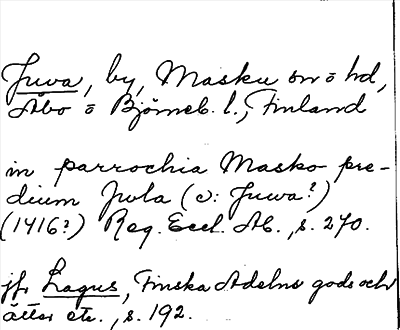 Juva, by, Masku sn o hd,
Åbo o Björneb. l., Finland
in parrochia Masko pre-
dium Jwla (ɔ: Juwa?)
(1416?) Reg. Eccl. Ab., s. 270.
jfr Lagus, Finska Adelns gods och
ätter etc., s. 192.